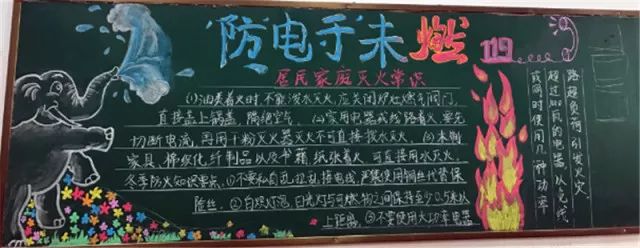 防电于未燃
119
居民家庭灭火常识
(1)油类着火时,不能泼水灭火,应关闭炉灶燃气阀门,
直接盖上锅盖,隔绝空气。(2)家用电器或线路着火,要先
切断电流,再用干粉灭火器灭火不可直接泼水灭火。(3)木制
家具、棉纺化纤制品以及书籍,纸张着火,可直接用水灭火。
冬季防火知识要点,(1)不要私自乱拉乱接电线,严禁使用铜丝代替保
险丝。(2)白炽灯泡、日光灯与可燃物之间保持至少0.5米以
上距离。(3)不要使用大功率电器
或同时使用几种功率
超过 瓦的电器以免线
路超负荷引发火灾。